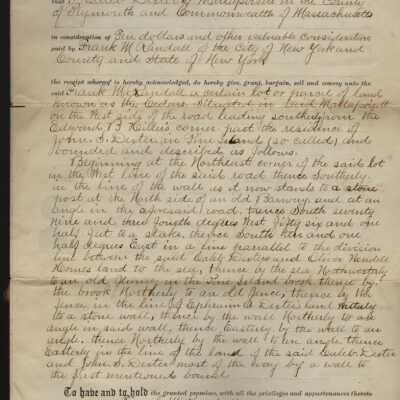 of Mattapoisett in the County
of Plymouth and Commonwealth of Massachusetts
in consideration of Ten dollars and other valuable Consideration
paid by Frank M. Randall of the City of New York and
County and State of New York
the receipt whereof is hereby acknowledged, do hereby give, grant, bargain, sell and convey unto the
said Frank M. Randall a certain lot or parcel of land
known as the Cedars Situated in said Mattapoisett
on the West side of the road leading southerly from the
Edward B. corner just the residence of
John S. Dexter on Pine Island (so called) and
bounded and described as follows.
Beginning at the Northeast corner of the said lot
in the West line of the said road thence Southerly
in the line of the wall as it now stands to a stone
post at the North side of an old and at an
angle in the aforesaid road, thence South seventy
nine and three fourths degrees West fifty six and one
half feet to a stake, thence South ten and one
half degrees East in a line parrallel to the division
line between the said Caleb Dexter and Oliver
land to the sea, thence by the sea Northwesterly
to an old in the Pine Island brook thence by
the brook Northerly to an old fence, thence by the
fence in the line of Ephraim Dexters land
to a stone wall, thence by the wall Northerly to an
angle in said wall, thence Easterly by the wall to an
angle, thence Northerly by the wall to an angle thence
Easterly in the line of the land of the said Caleb Dexter
and John S. Dexter most of the way by a wall to
the first mentioned bound.
To have and to hold the granted premises, with all the privileges and appurtenances thereto